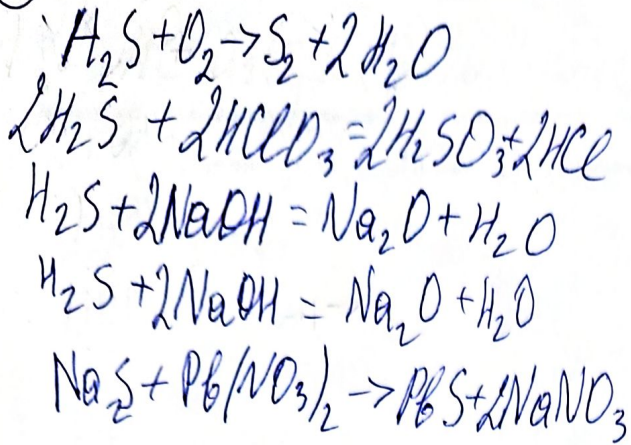 H₂S+O₂→S₂+2H₂O
2H₂S+2HClO₃=2H₂SO₃+2HCl
H₂S+2NaOH=Na₂O+H₂O
H₂S+2NaOH=Na₂O+H₂O
Na₂S+Pb(NO₃)₂→PbS+2NaNO₃